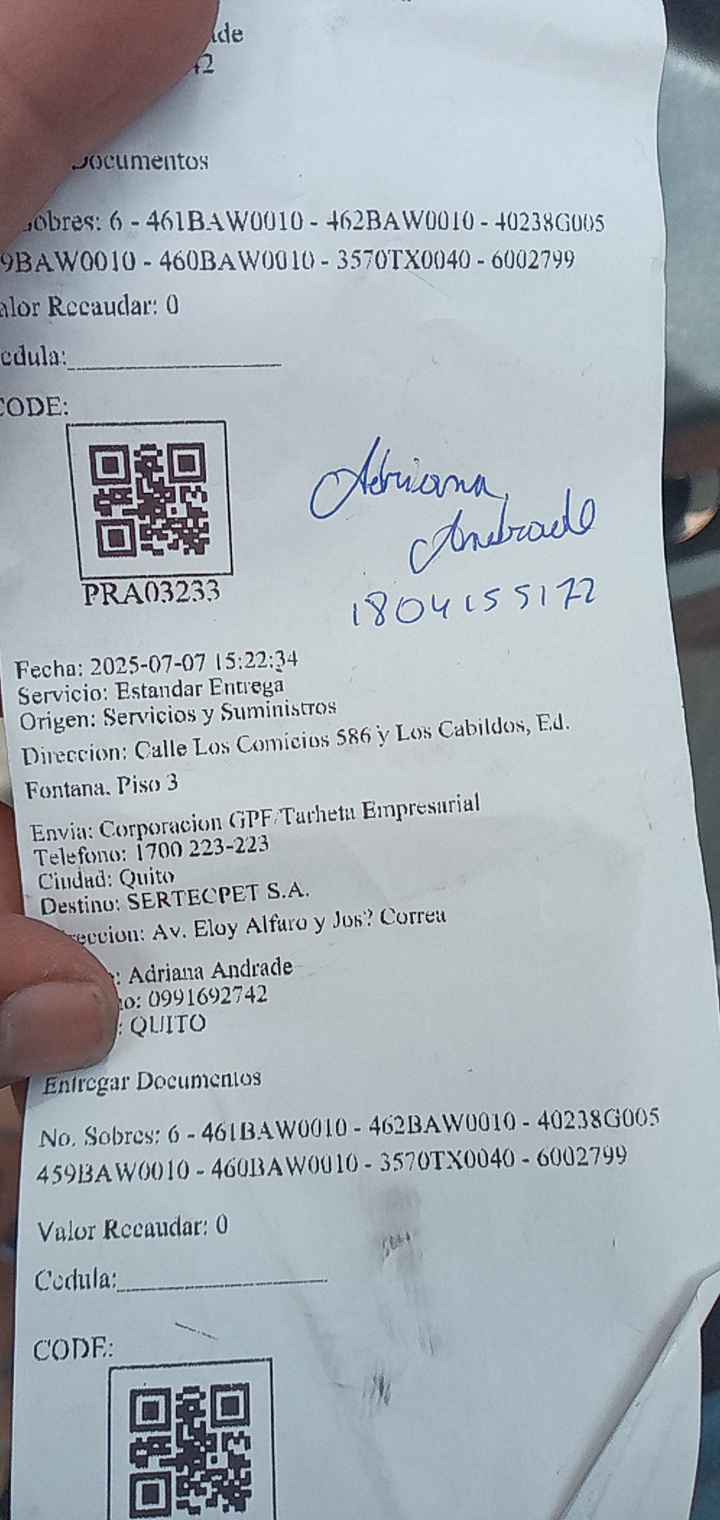 42
Documentos
Sobres: 6 - 461BAW0010 - 462BAW0010 - 40238G005
9BAW0010 - 460BAW0010 - 3570TX0040 - 6002799
alor Recaudar: 0
edula:
CODE:
PRA03233
Adriana
Andrade
1804155172
Fecha: 2025-07-07 15:22:34
Servicio: Estandar Entrega
Origen: Servicios y Suministros
Direccion: Calle Los Comicios 586 y Los Cabildos, Ed.
Fontana. Piso 3
Envia: Corporacion GPF/Tarheta Empresarial
Telefono: 1700 223-223
Ciudad: Quito
Destino: SERTECPET S.A.
reccion: Av. Eloy Alfaro y Jos? Correa
: Adriana Andrade
no: 0991692742
: QUITO
Entregar Documentos
No. Sobres: 6 - 461BAW0010 - 462BAW0010 - 40238G005
459BAW0010 - 460BAW0010 - 3570TX0040 - 6002799
Valor Recaudar: 0
Cedula:
CODE: